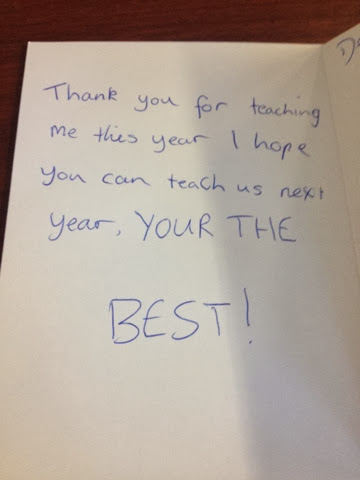 Thank you for teaching
me this year I hope
you can teach us next
year, YOUR THE
BEST!